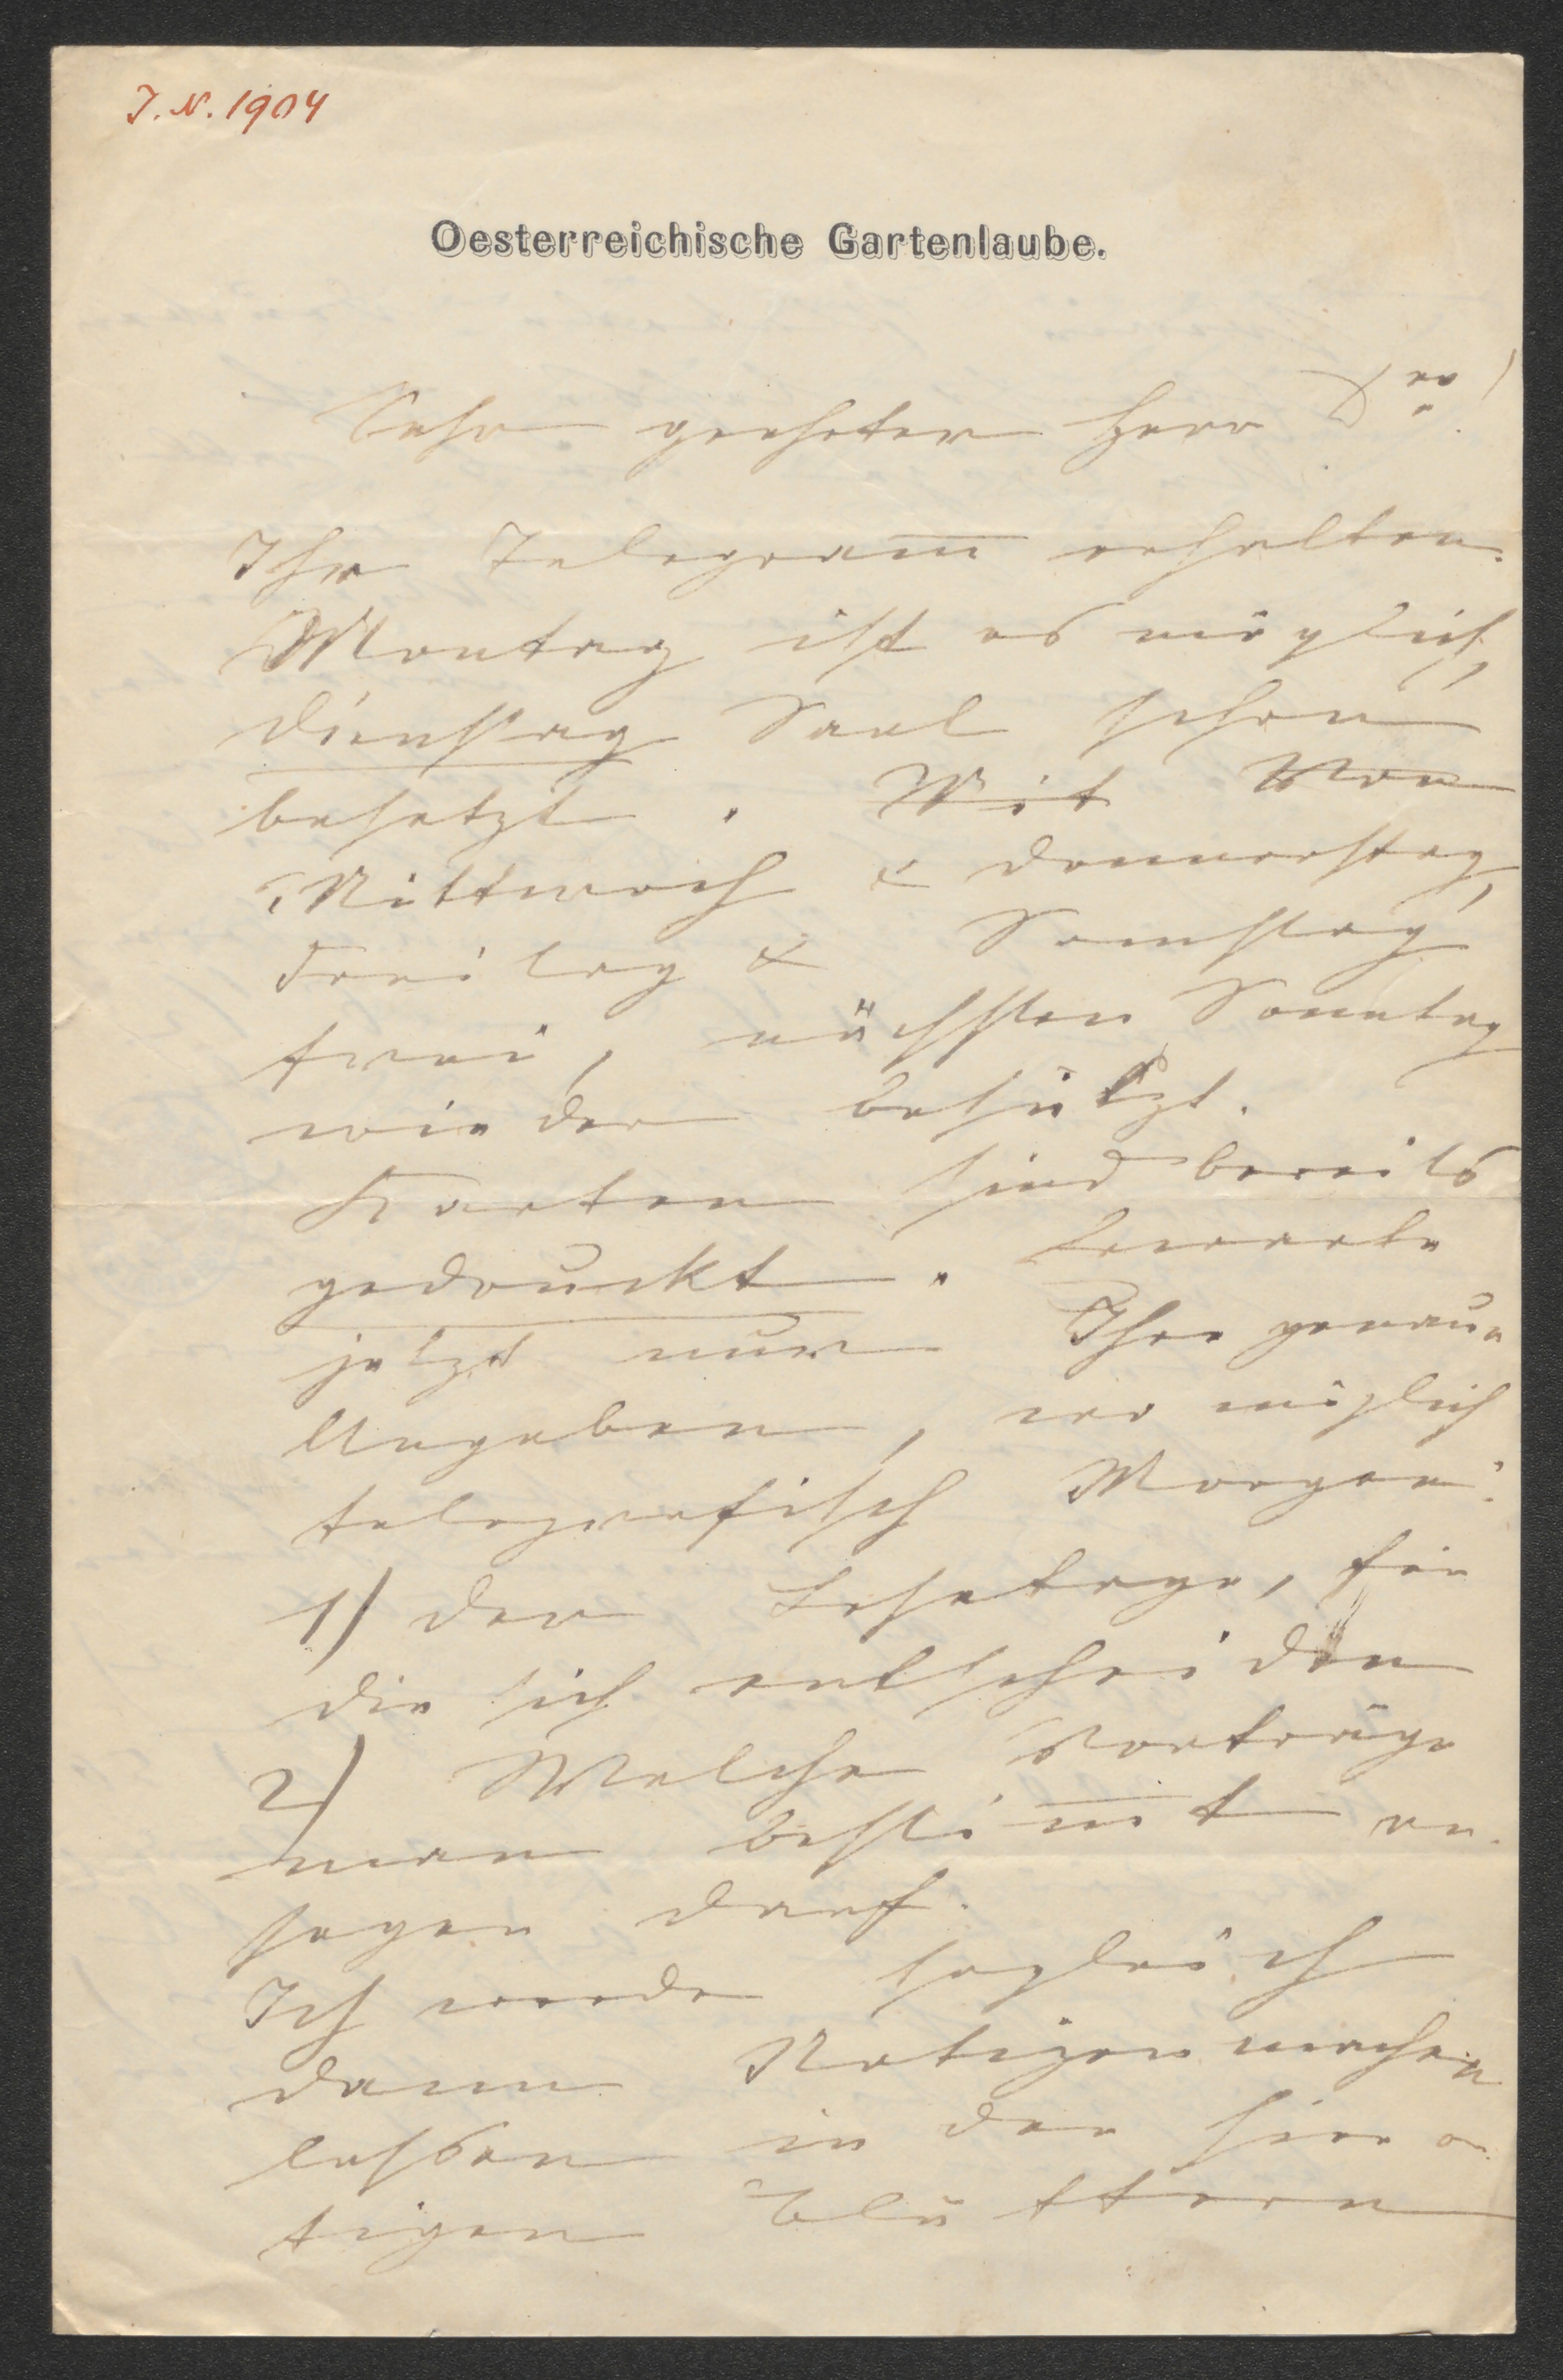 J. N. 1904
Oesterreichische Gartenlaube.
Sehr geehrter Herr Dr!
Ihr Telegram̅ erhalten.
Montag ist es möglich,
Dienstag Saal schon
besetzt. Mit Mon
Mittwoch & Donnerstag,
Freitag & Samstag
frei, nächsten Sonntag
wieder besetzt.
Karten sind bereits
gedruckt. Erwarte
jetzt nur Ihre genaue
Angaben, wo möglich
telegrafisch Morgen:
1) der Lesetage, für
die sich entscheiden
2) Welche Vorträge
man bestim̅t an-
sagen darf.
Ich werde sogleich
dann Notizen machen
lassen in den hier
tigen Blättern